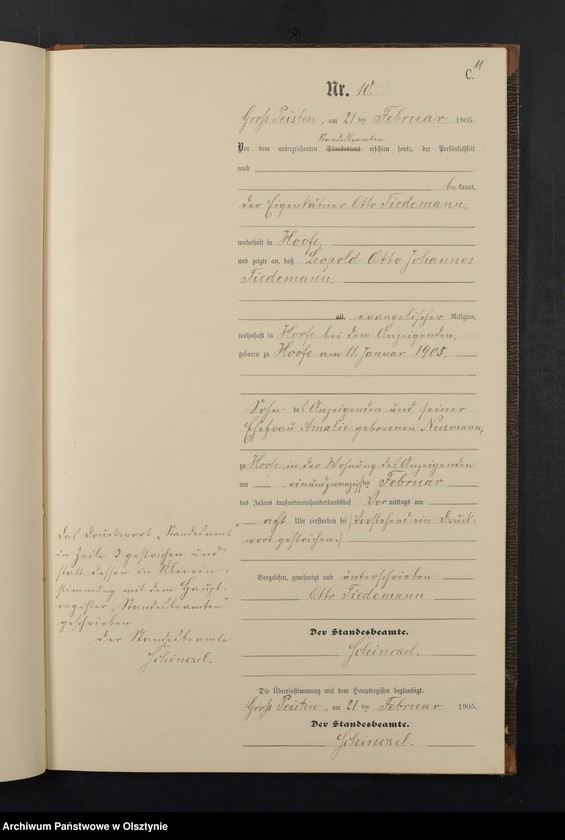 11
C.
Nr. 10.
Gross Peisten, am 21ten Februar 1905.
Standesbeamten
Vor dem unterzeichneten Standesamt erschien heute, der Persönlichkeit
nach
be kannt,
der Eigenkätner Otto Tiedemann,
wohnhaft in Hoofe,
und zeigte an, daß Leopold Otto Johannes
Tiedemann,
alt, evangelischer Religion,
wohnhaft in Hoofe bei dem Anzeigenden,
geboren zu Hoofe am 11. Januar 1905,
Sohn des Anzeigenden und seiner
Ehefrau Amalie geborenen Neumann,
zu Hoofe in der Wohnung des Anzeigenden
am einundzwanzigsten Februar
des Jahres tausendneunhundertundfünf Vormittags um
acht Uhr verstorben sei (Vorstehend ein Druck-
wort gestrichen.)
Das Druckwort „Standesamt
in Zeile 3 gestrichen und
statt dessen in Überein-
stimmung mit dem Haupt-
register „Standesbeamten"
geschrieben
Der Standesbeamte
Vorgelesen, genehmigt und unterschrieben
Otto Tiedemann
Der Standesbeamte.
Die Übereinstimmung mit dem Hauptregister beglaubigt.
Gross Peisten, am 21ten Februar 1905.
Der Standesbeamte.
Archiwum Państwowe w Olsztynie